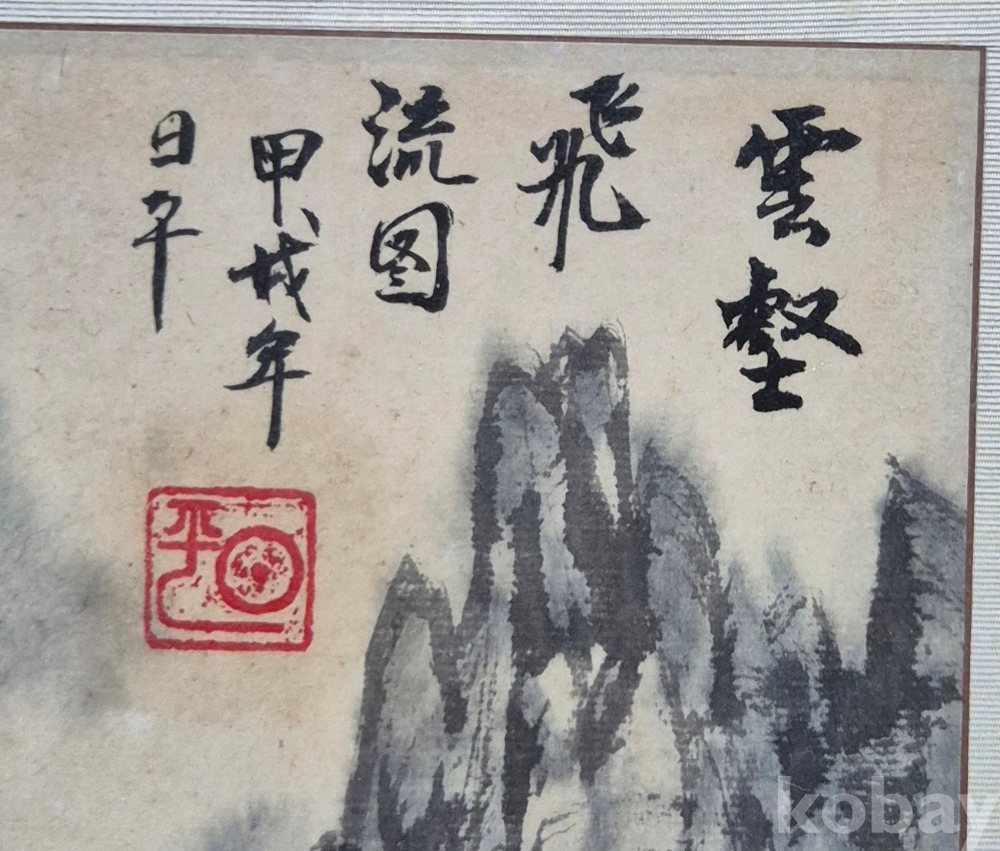 雲壑
飛
流图
甲戌年
日平
kobay